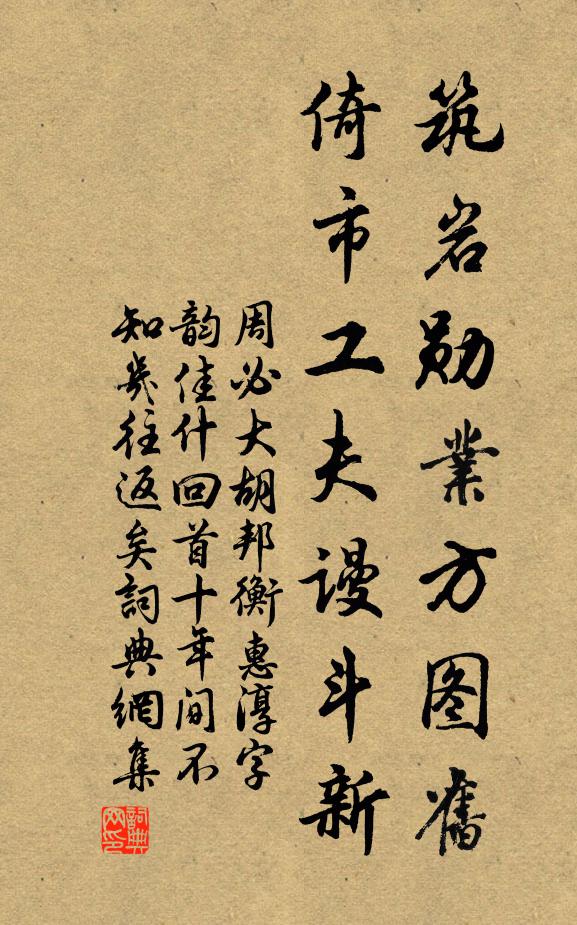 筑岩勋業方图舊
倚市工夫谩斗新
周必大胡邦衡惠淳字
韵佳什回首十年间不
知幾往返矣詞典網集
詞典网印